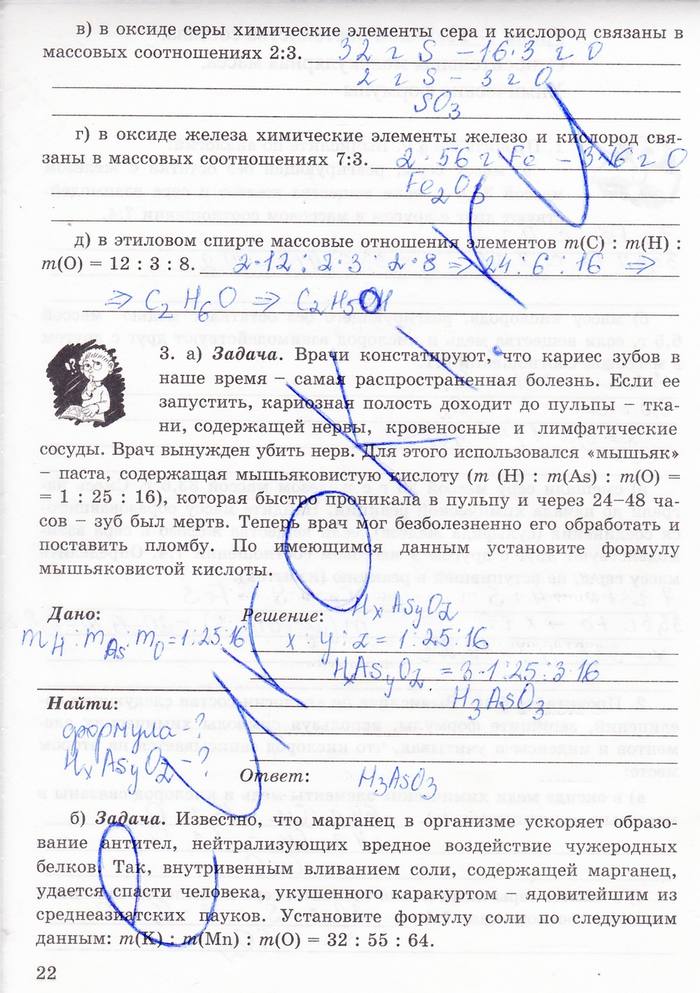 в) в оксиде серы химические элементы сера и кислород связаны в
массовых соотношениях 2:3. 32 г S – 16·3 г O
2 г S – 3 г O
SO3
г) в оксиде железа химические элементы железо и кислород свя-
заны в массовых соотношениях 7:3. 2·56 г Fe – 3·16 г O
Fe2O3
д) в этиловом спирте массовые отношения элементов m(C) : m(H) :
m(O) = 12 : 3 : 8. 2·12 : 2·3 : 2·8 ⇒ 24 : 6 : 16 ⇒
⇒ C2H6O ⇒ C2H5OH
3. а) Задача. Врачи констатируют, что кариес зубов в
наше время – самая распространенная болезнь. Если ее
запустить, кариозная полость доходит до пульпы – тка-
ни, содержащей нервы, кровеносные и лимфатические
сосуды. Врач вынужден убить нерв. Для этого использовался «мышьяк»
– паста, содержащая мышьяковистую кислоту (m (H) : m(As) : m(O) =
= 1 : 25 : 16), которая быстро проникала в пульпу и через 24–48 ча-
сов – зуб был мертв. Теперь врач мог безболезненно его обработать и
поставить пломбу. По имеющимся данным установите формулу
мышьяковистой кислоты.
Дано: Решение: HxAsyOz
mH : mAs : mO = 1:25:16 x : y : z = 1 : 25 : 16
HxAsyOz = 3·1:25:3·16
Найти: H3AsO3
формула – ?
HxAsyOz – ?
Ответ: H3AsO3
б) Задача. Известно, что марганец в организме ускоряет образо-
вание антител, нейтрализующих вредное воздействие чужеродных
белков. Так, внутривенным вливанием соли, содержащей марганец,
удается спасти человека, укушенного каракуртом – ядовитейшим из
среднеазиатских пауков. Установите формулу соли по следующим
данным: m(K) : m(Mn) : m(O) = 32 : 55 : 64.
22